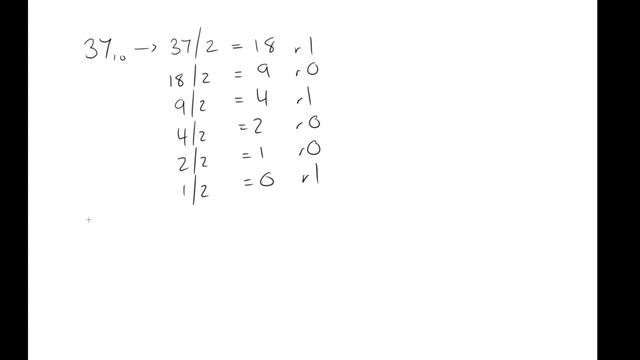 37₁₀ → 37/2 = 18 r1
18/2 = 9 r0
9/2 = 4 r1
4/2 = 2 r0
2/2 = 1 r0
1/2 = 0 r1